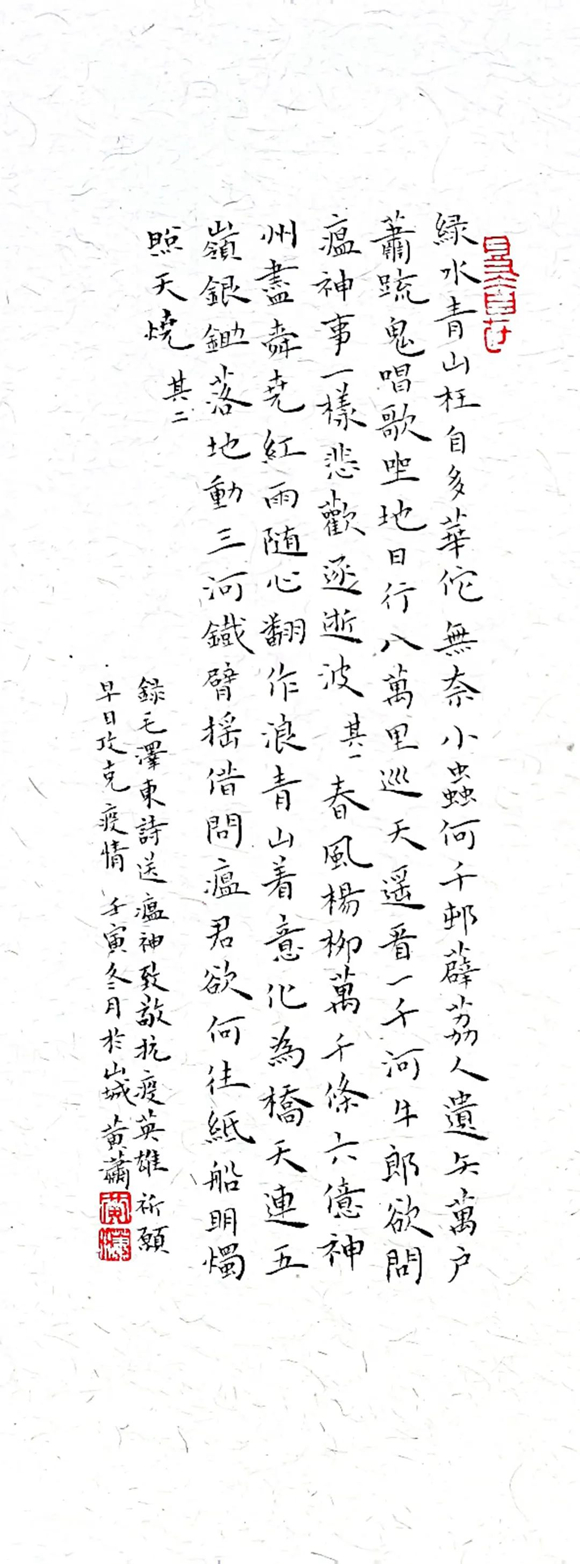 緑水青山枉自多華佗無奈小蟲何千邨薜荔人遺矢萬户
蕭疏鬼唱歌坐地日行八萬里巡天遥看一千河牛郎欲問
瘟神事一樣悲歡逐逝波 其一 春風楊柳萬千條六億神
州盡舜尭紅雨随心翻作浪青山着意化為橋天連五
嶺銀鋤落地動三河鐵臂摇借問瘟君欲何往紙船明燭
照天燒 其二
録毛澤東詩送瘟神致敬抗疫英雄祈願
早日攻克疫情 壬寅冬月於山城黄蕭